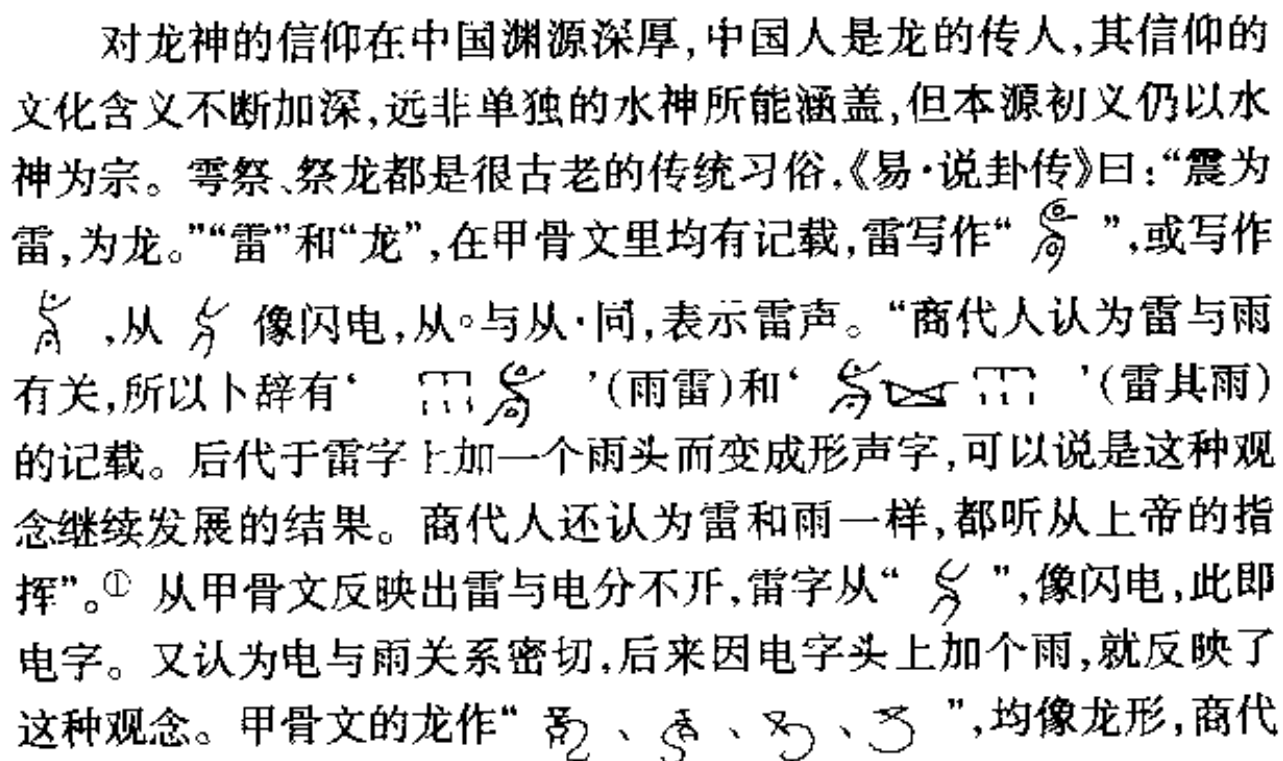 对龙神的信仰在中国渊源深厚,中国人是龙的传人,其信仰的
文化含义不断加深,远非单独的水神所能涵盖,但本源初义仍以水
神为宗。雩祭、祭龙都是很古老的传统习俗,《易·说卦传》曰:“震为
雷,为龙。”“雷”和“龙”,在甲骨文里均有记载,雷写作“ ”,或写作
,从 像闪电,从。与从·同,表示雷声。“商代人认为雷与雨
有关,所以卜辞有‘ ’(雨雷)和‘ ’(雷其雨)
的记载。后代于雷字上加一个雨头而变成形声字,可以说是这种观
念继续发展的结果。商代人还认为雷和雨一样,都听从上帝的指
挥”。① 从甲骨文反映出雷与电分不开,雷字从“ ”,像闪电,此即
电字。又认为电与雨关系密切,后来因电字头上加个雨,就反映了
这种观念。甲骨文的龙作“ 、 、 、 ”,均像龙形,商代